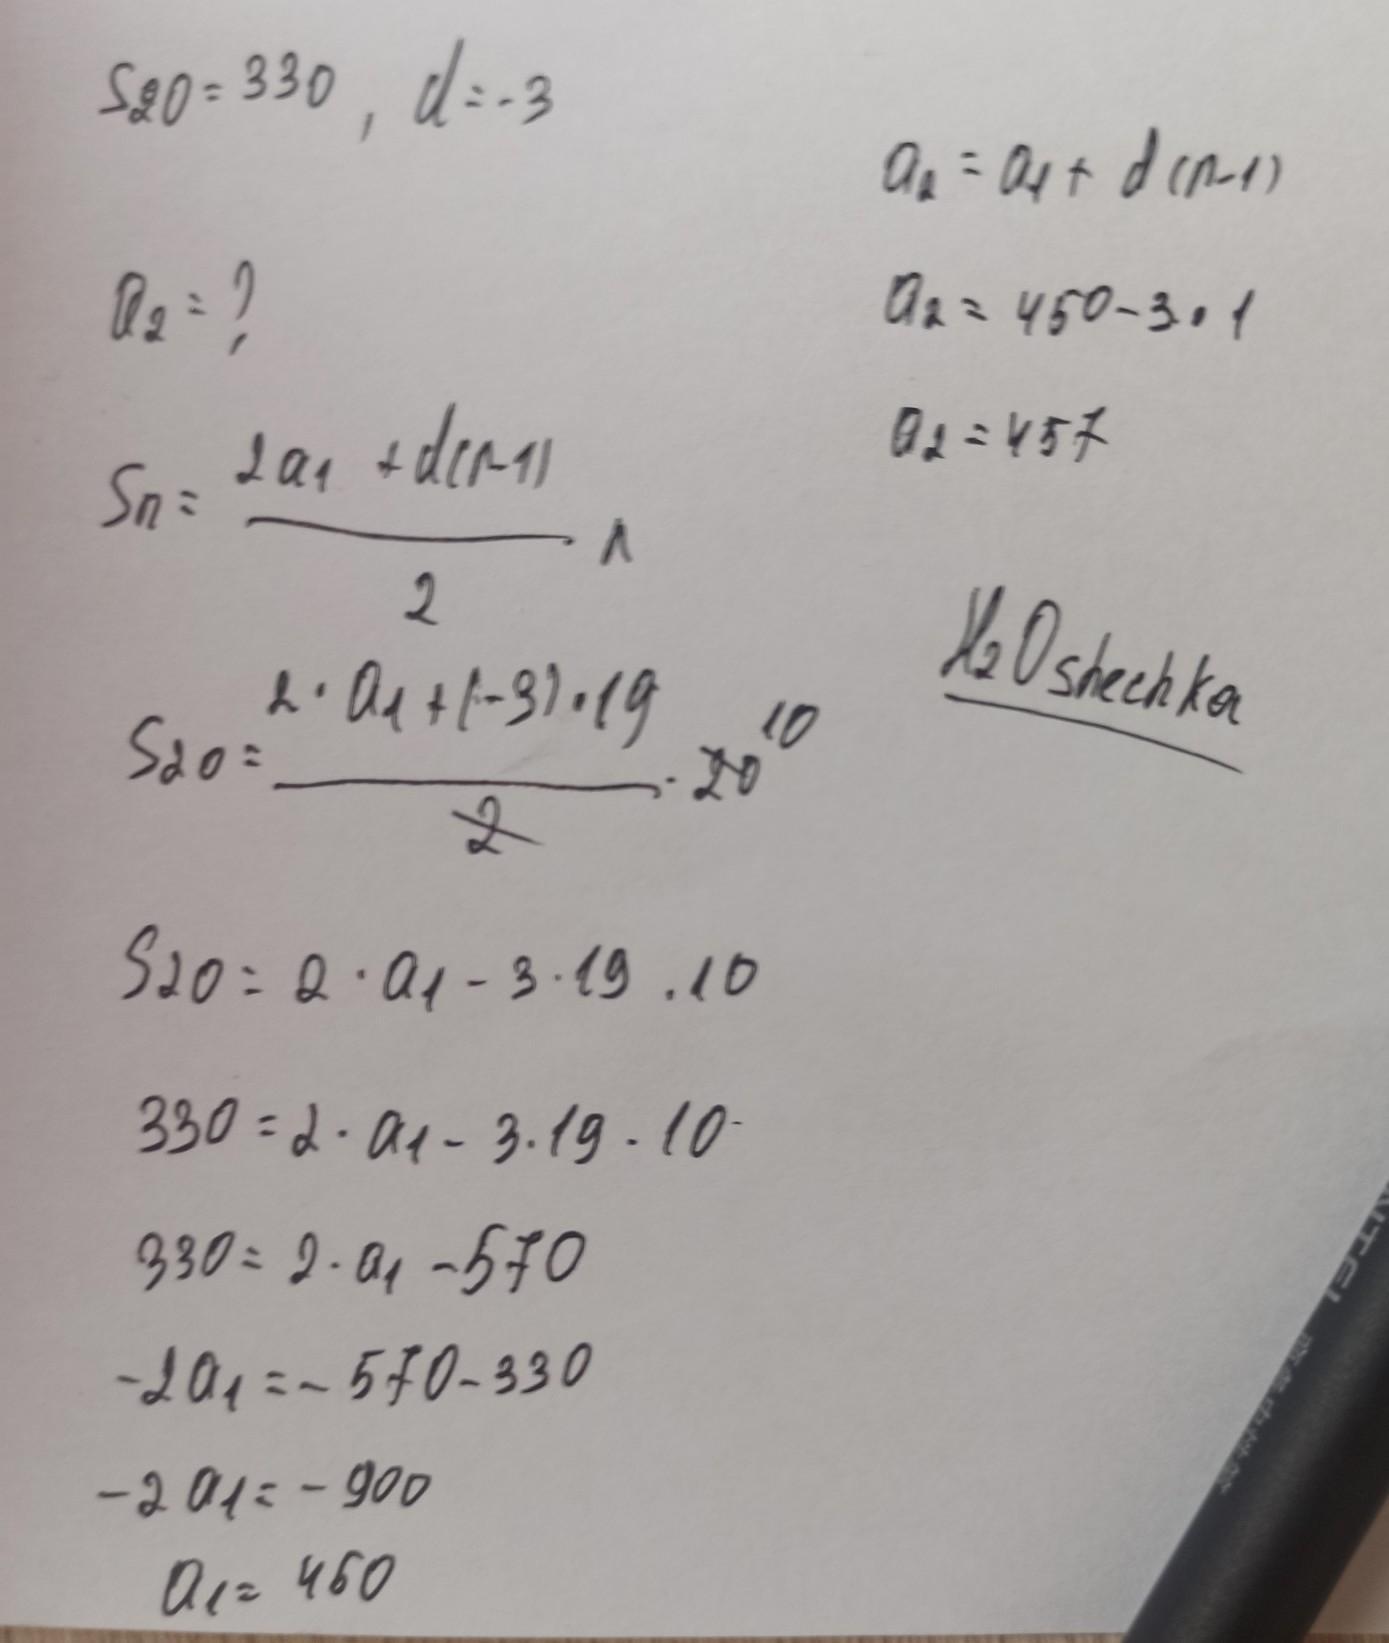 S20 = 330, d = -3
a2 = ?
Sn = (2a1 + d(n-1))/2 · n
S20 = (2 · a1 + (-3) · 19)/2 · 20 10
S20 = 2 · a1 - 3 · 19 · 10
330 = 2 · a1 - 3 · 19 · 10
330 = 2 · a1 - 570
-2a1 = -570-330
-2a1 = -900
a1 = 450
a2 = a1 + d(n-1)
a2 = 450-3·1
a2 = 457
H2Oshechka